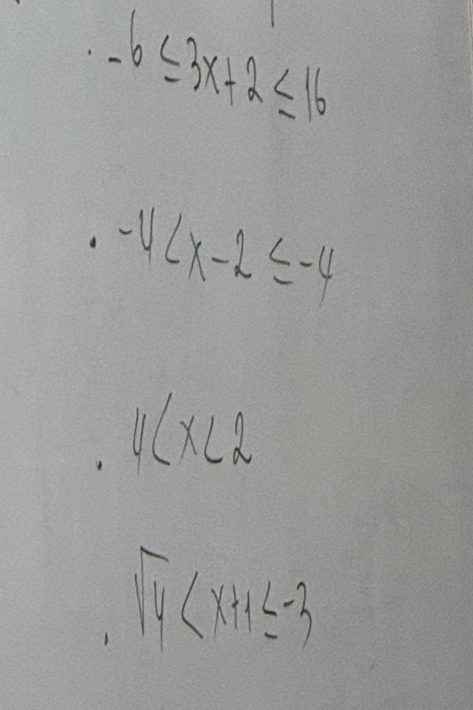 . -6 ≤ 3x+2 ≤ 16
. -4 < x-2 ≤ -4
. 4 < x < 2
. √4 < x+1 ≤ -3